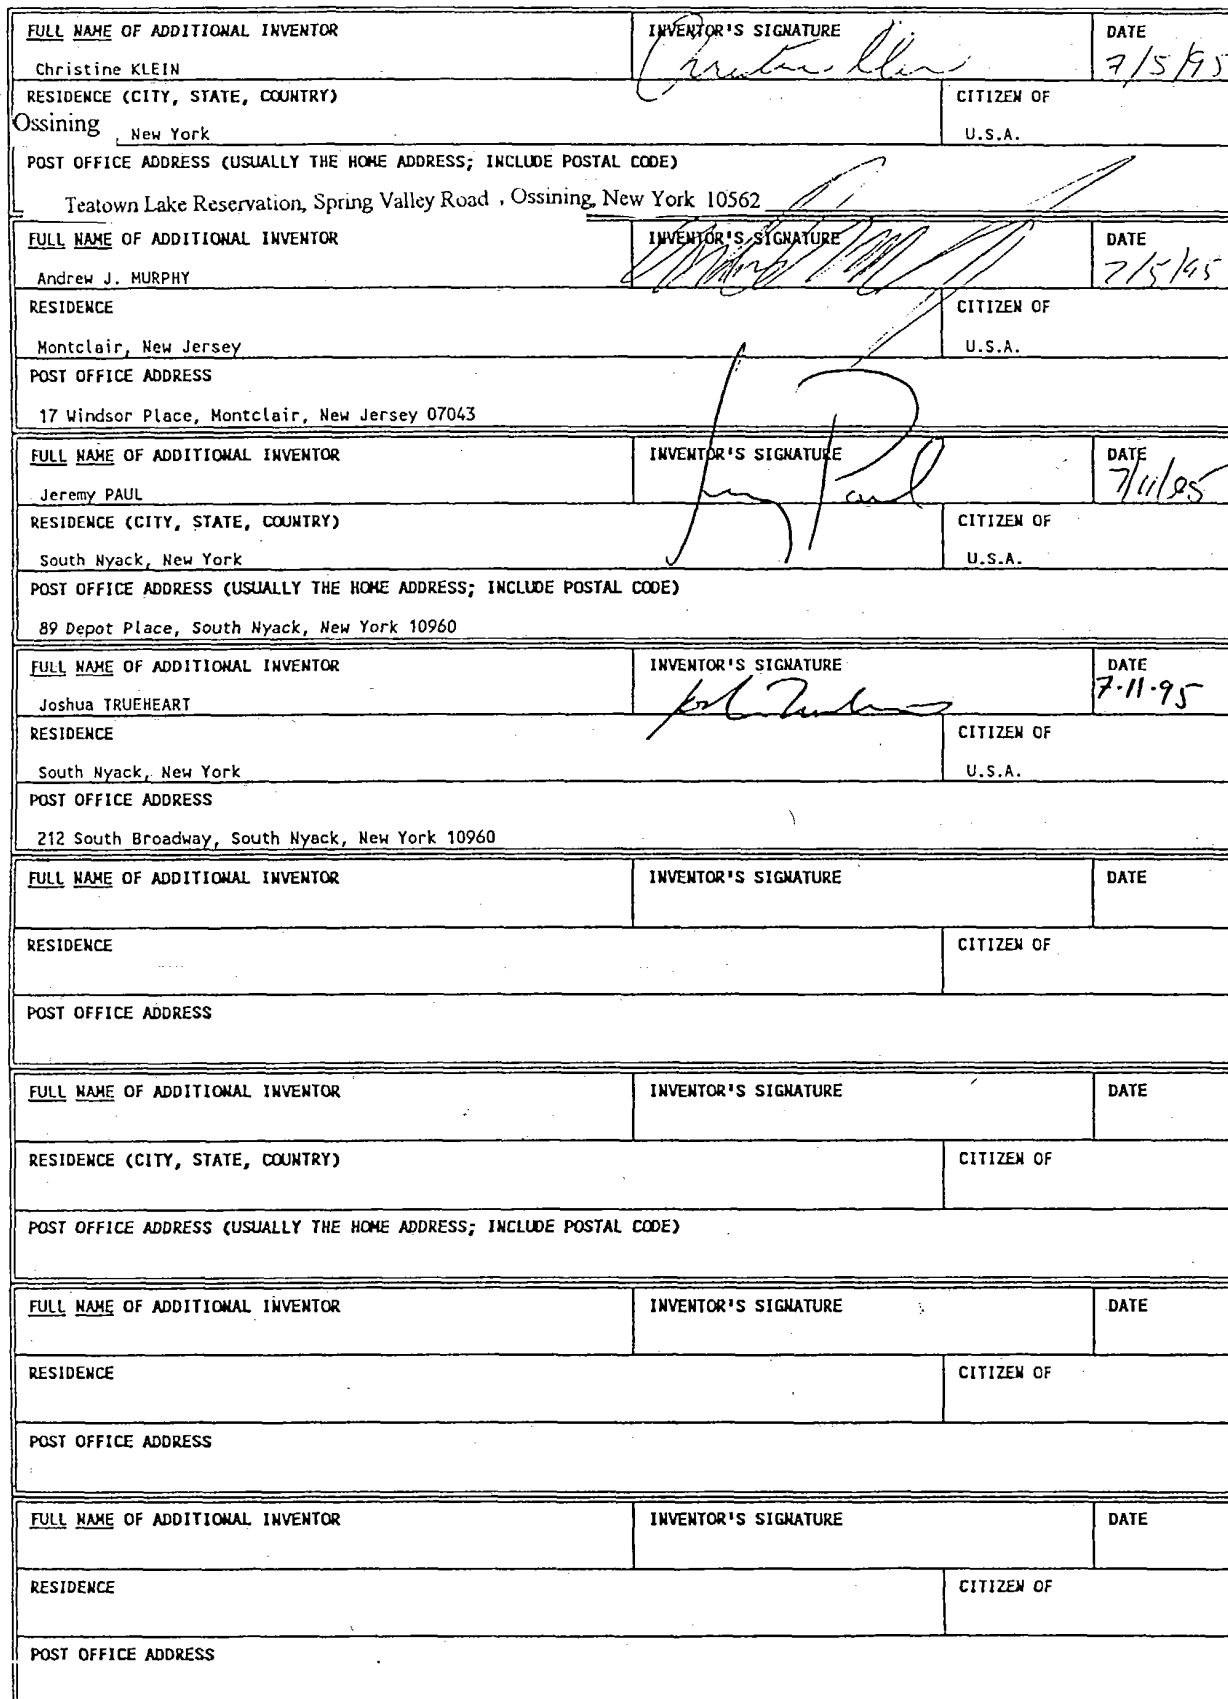 FULL NAME OF ADDITIONAL INVENTOR INVENTOR'S SIGNATURE DATE
Christine KLEIN Christine Klein 7/5/95
RESIDENCE (CITY, STATE, COUNTRY) CITIZEN OF
Ossining , New York U.S.A.
POST OFFICE ADDRESS (USUALLY THE HOME ADDRESS; INCLUDE POSTAL CODE)
Teatown Lake Reservation, Spring Valley Road , Ossining, New York 10562
FULL NAME OF ADDITIONAL INVENTOR INVENTOR'S SIGNATURE DATE
Andrew J. MURPHY 7/5/95
RESIDENCE CITIZEN OF
Montclair, New Jersey U.S.A.
POST OFFICE ADDRESS
17 Windsor Place, Montclair, New Jersey 07043
FULL NAME OF ADDITIONAL INVENTOR INVENTOR'S SIGNATURE DATE
Jeremy PAUL Paul 7/11/95
RESIDENCE (CITY, STATE, COUNTRY) CITIZEN OF
South Nyack, New York U.S.A.
POST OFFICE ADDRESS (USUALLY THE HOME ADDRESS; INCLUDE POSTAL CODE)
89 Depot Place, South Nyack, New York 10960
FULL NAME OF ADDITIONAL INVENTOR INVENTOR'S SIGNATURE DATE
Joshua TRUEHEART 7·11·95
RESIDENCE CITIZEN OF
South Nyack, New York U.S.A.
POST OFFICE ADDRESS
212 South Broadway, South Nyack, New York 10960
FULL NAME OF ADDITIONAL INVENTOR INVENTOR'S SIGNATURE DATE
RESIDENCE CITIZEN OF
POST OFFICE ADDRESS
FULL NAME OF ADDITIONAL INVENTOR INVENTOR'S SIGNATURE DATE
RESIDENCE (CITY, STATE, COUNTRY) CITIZEN OF
POST OFFICE ADDRESS (USUALLY THE HOME ADDRESS; INCLUDE POSTAL CODE)
FULL NAME OF ADDITIONAL INVENTOR INVENTOR'S SIGNATURE DATE
RESIDENCE CITIZEN OF
POST OFFICE ADDRESS
FULL NAME OF ADDITIONAL INVENTOR INVENTOR'S SIGNATURE DATE
RESIDENCE CITIZEN OF
POST OFFICE ADDRESS